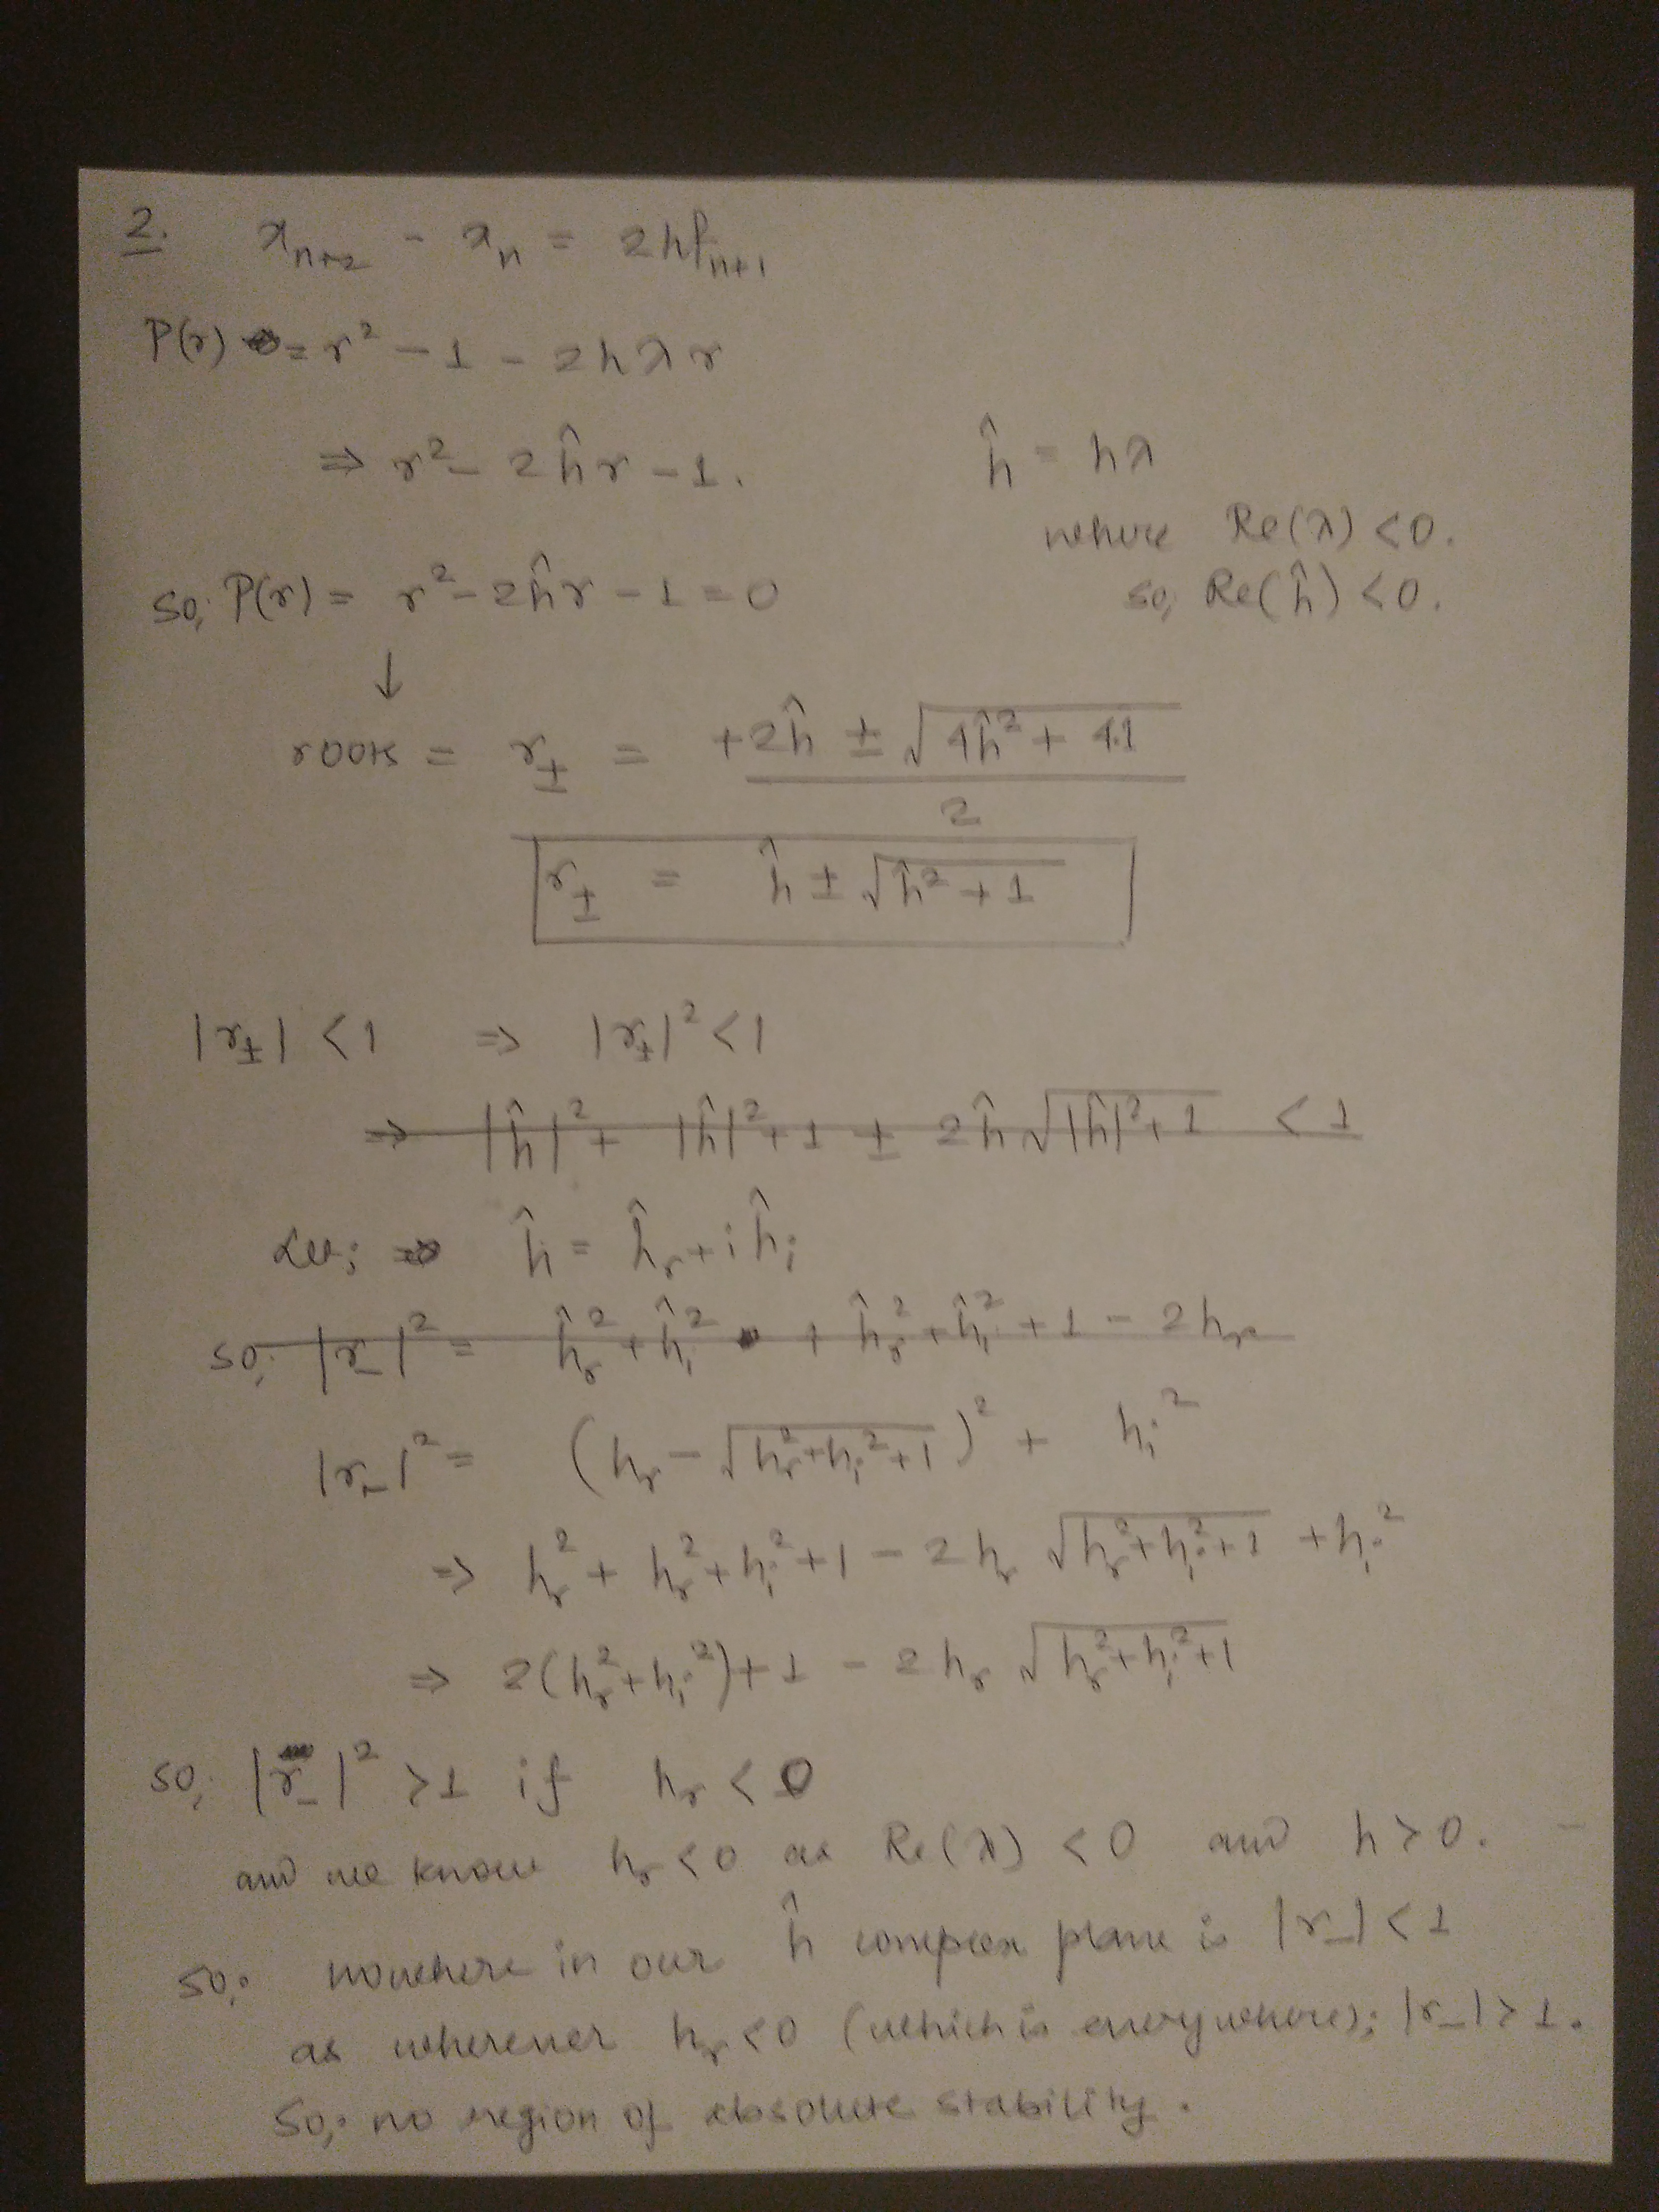 2. x_{n+2} - x_n = 2hf_{n+1}
P(r) = r² - 1 - 2hλr
⇒ r² - 2ĥr - 1. ĥ = hλ
where Re(λ) < 0.
so, Re(ĥ) < 0.
so, P(r) = r² - 2ĥr - 1 = 0
↓
roots = r_± = +2ĥ ± √(4ĥ² + 4.1) / 2
r_± = ĥ ± √(ĥ² + 1)
|r_±| < 1 ⇒ |r_±|² < 1
⇒ |ĥ|² + |ĥ|² + 1 ± 2ĥ√(|ĥ|² + 1) < 1
Let; ⇒ ĥ = ĥ_r + iĥ_i
so; |r_-|² = ĥ_r² + ĥ_i² + ĥ_r² + ĥ_i² + 1 - 2h_r
|r_-|² = (h_r - √(h_r² + h_i² + 1))² + h_i²
⇒ h_r² + h_r² + h_i² + 1 - 2h_r √(h_r² + h_i² + 1) + h_i²
⇒ 2(h_r² + h_i²) + 1 - 2h_r √(h_r² + h_i² + 1)
so; |r_-|² > 1 if h_r < 0
and we know h_r < 0 as Re(λ) < 0 and h > 0.
so; nowhere in our ĥ complex plane is |r_-| < 1
as wherever h_r < 0 (which is everywhere); |r_-| > 1.
So; no region of absolute stability.